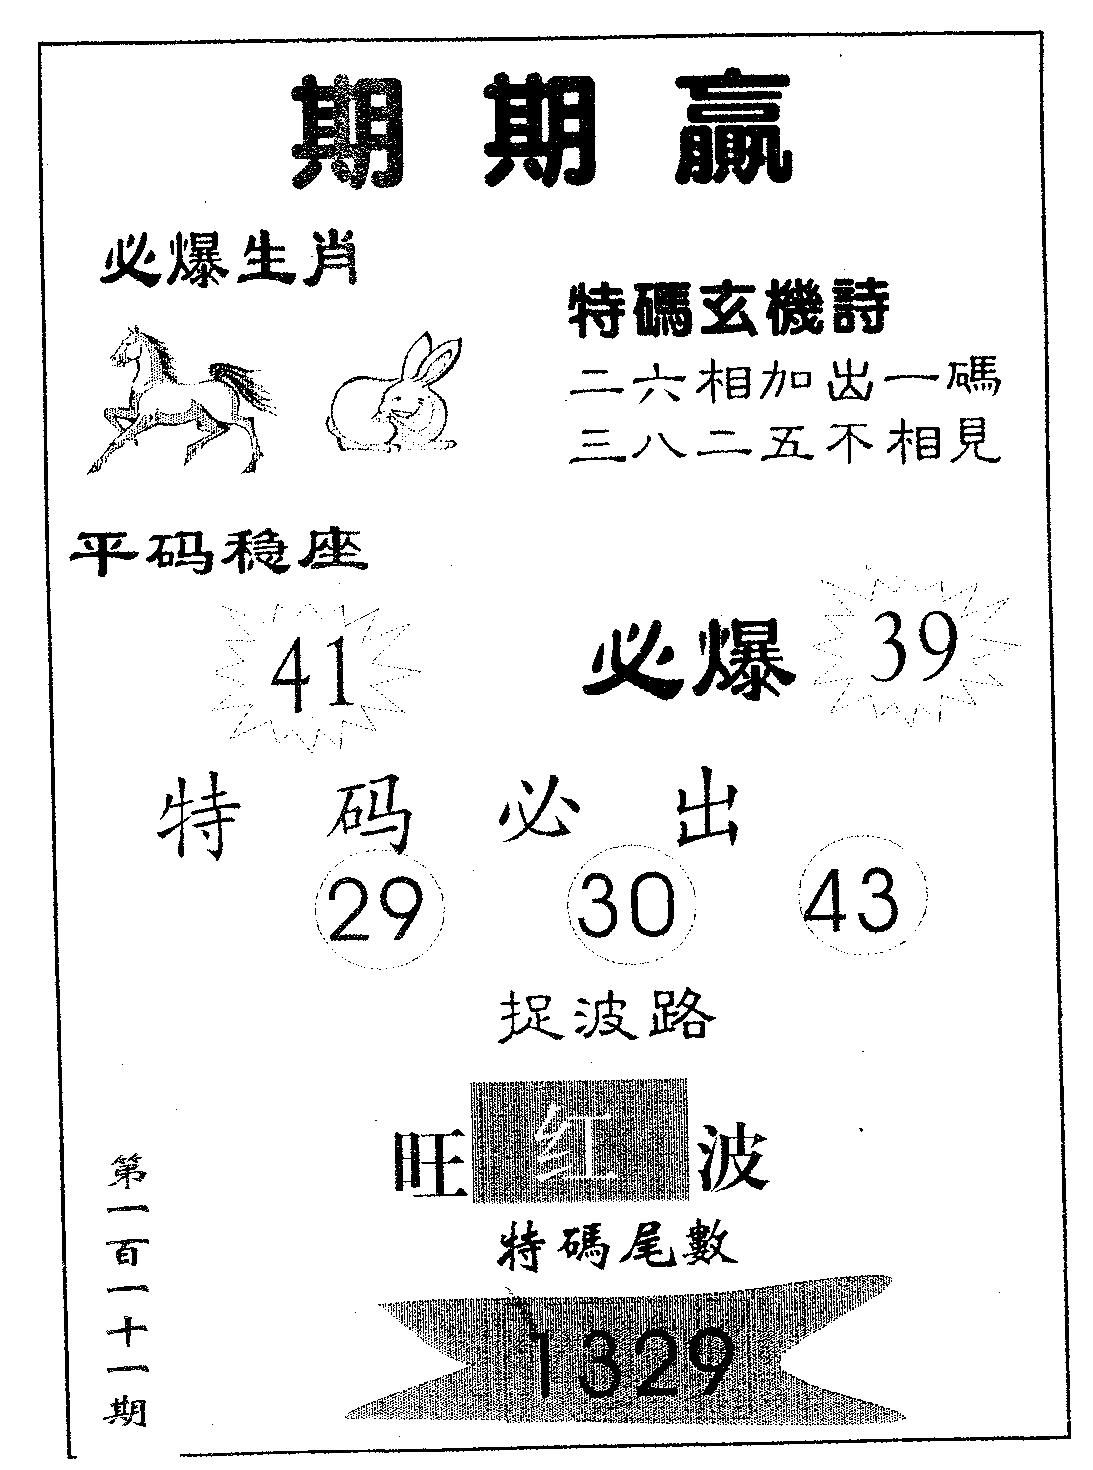 期期赢
必爆生肖
特碼玄機詩
二六相加出一碼
三八二五不相見
平码稳座
41
必爆 39
特码必出
29 30 43
捉波路
旺红波
特碼尾數
1329
第一百一十一期